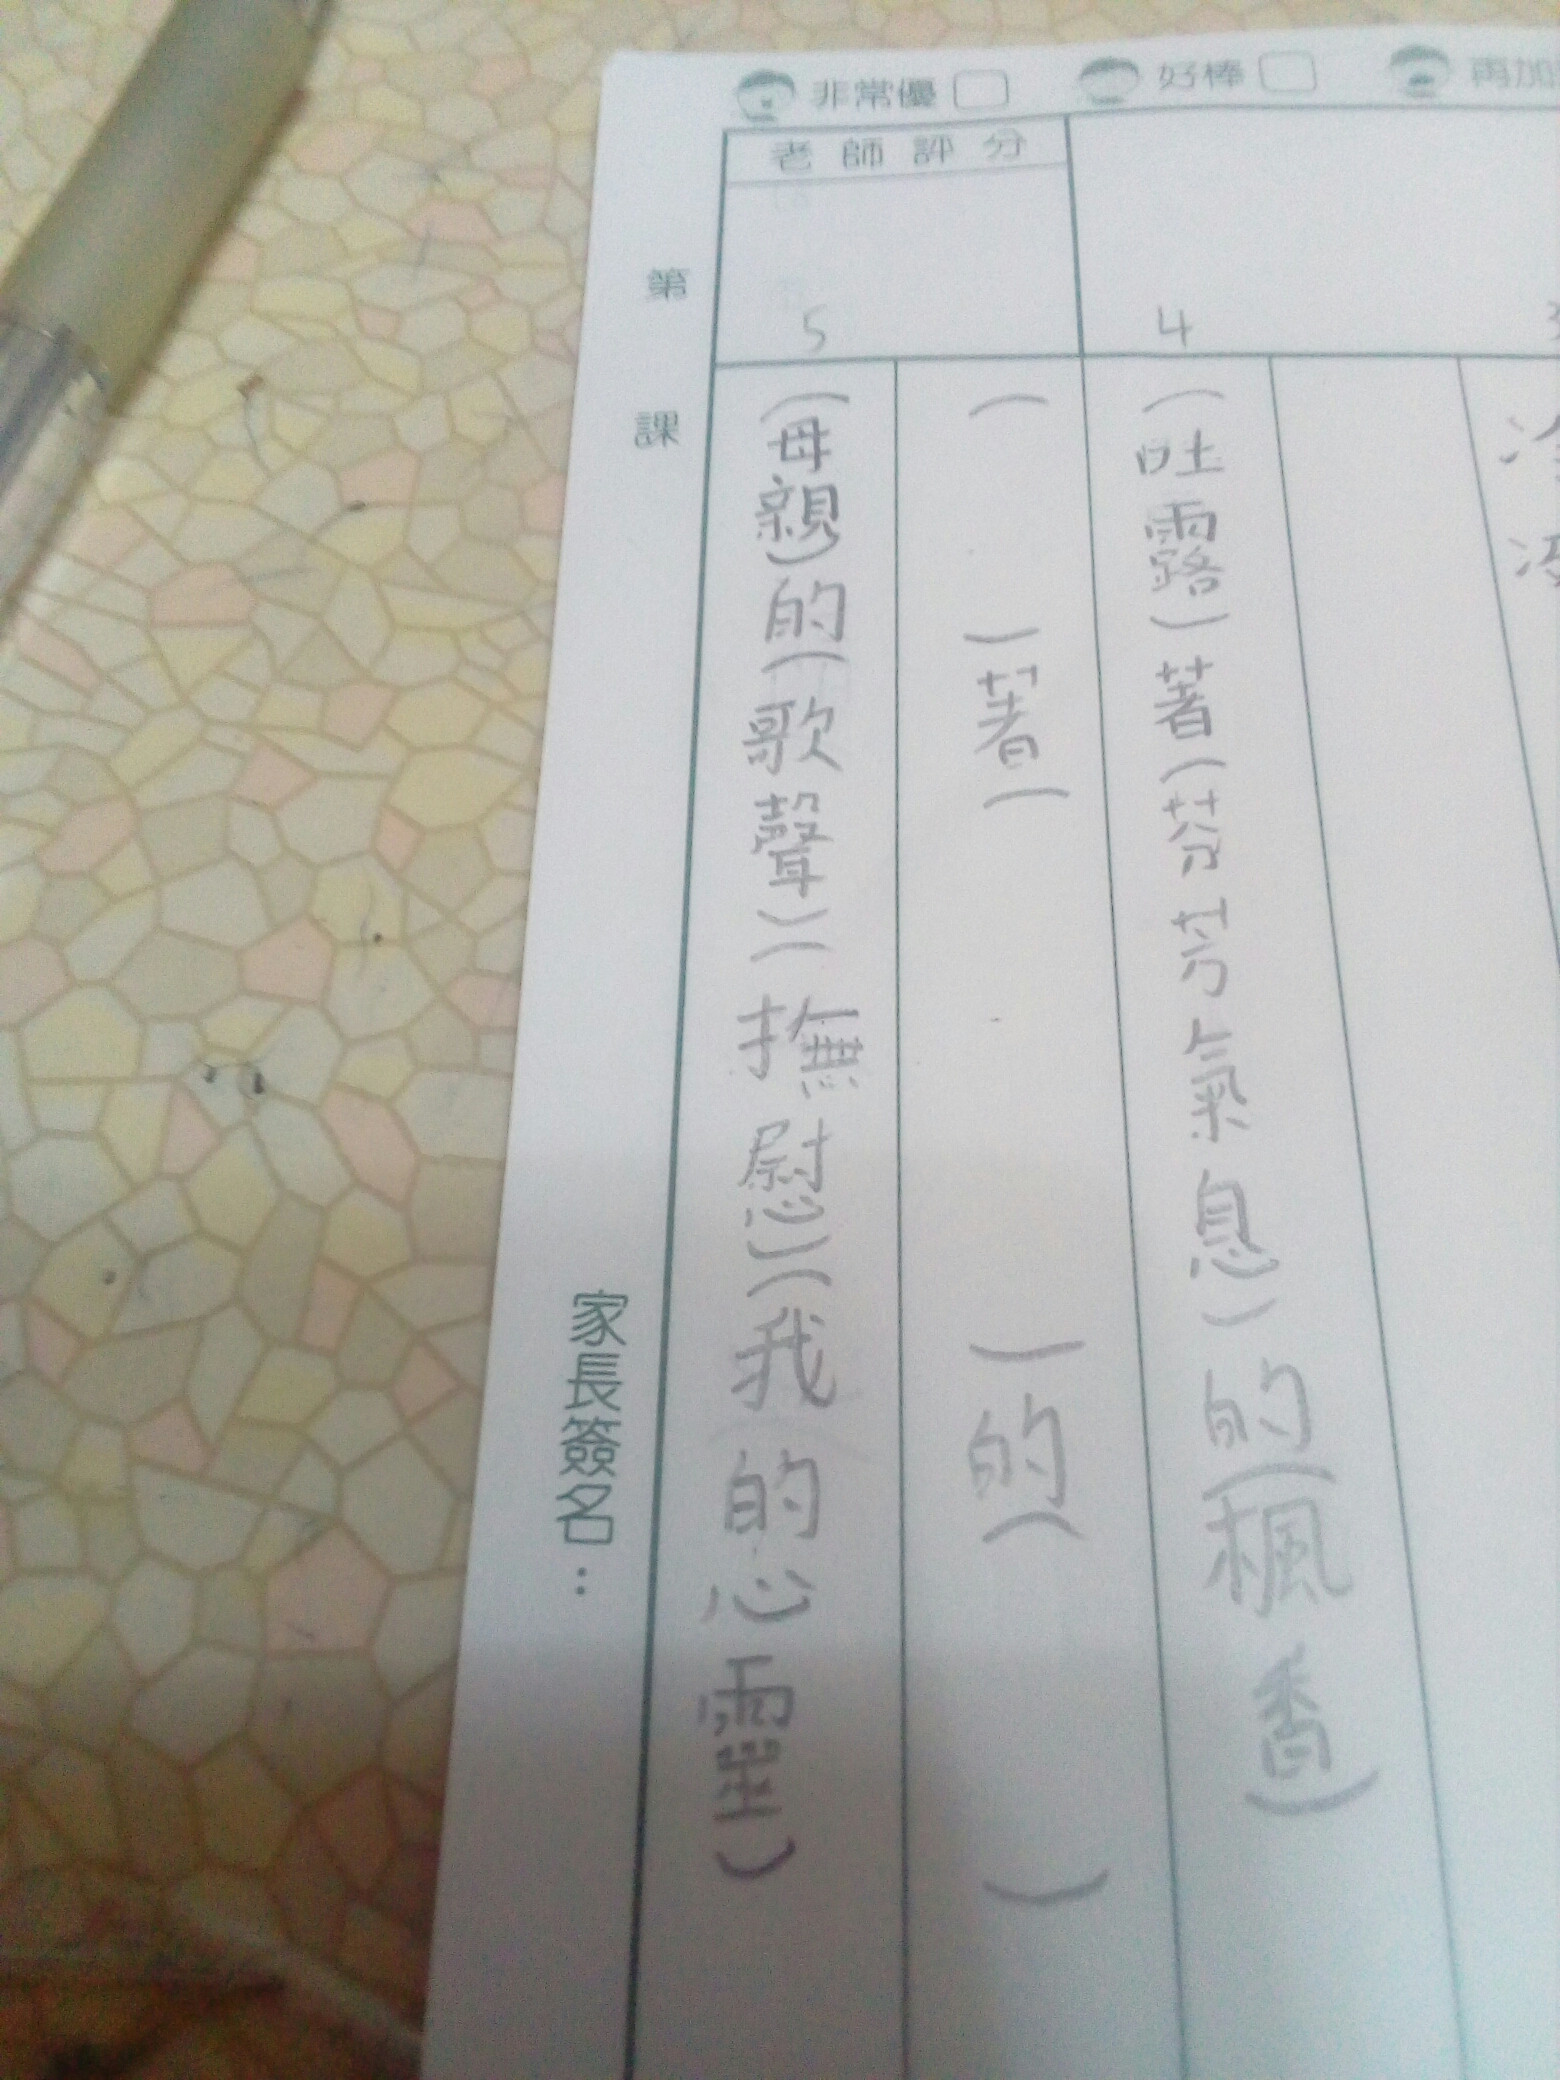 非常優 好棒 再加
老師評分
4
(吐露)著(芬芳氣息)的(楓香)
( )著( )的( )
5
(母親)的(歌聲)(撫慰)(我的心靈)
第 課
家長簽名：